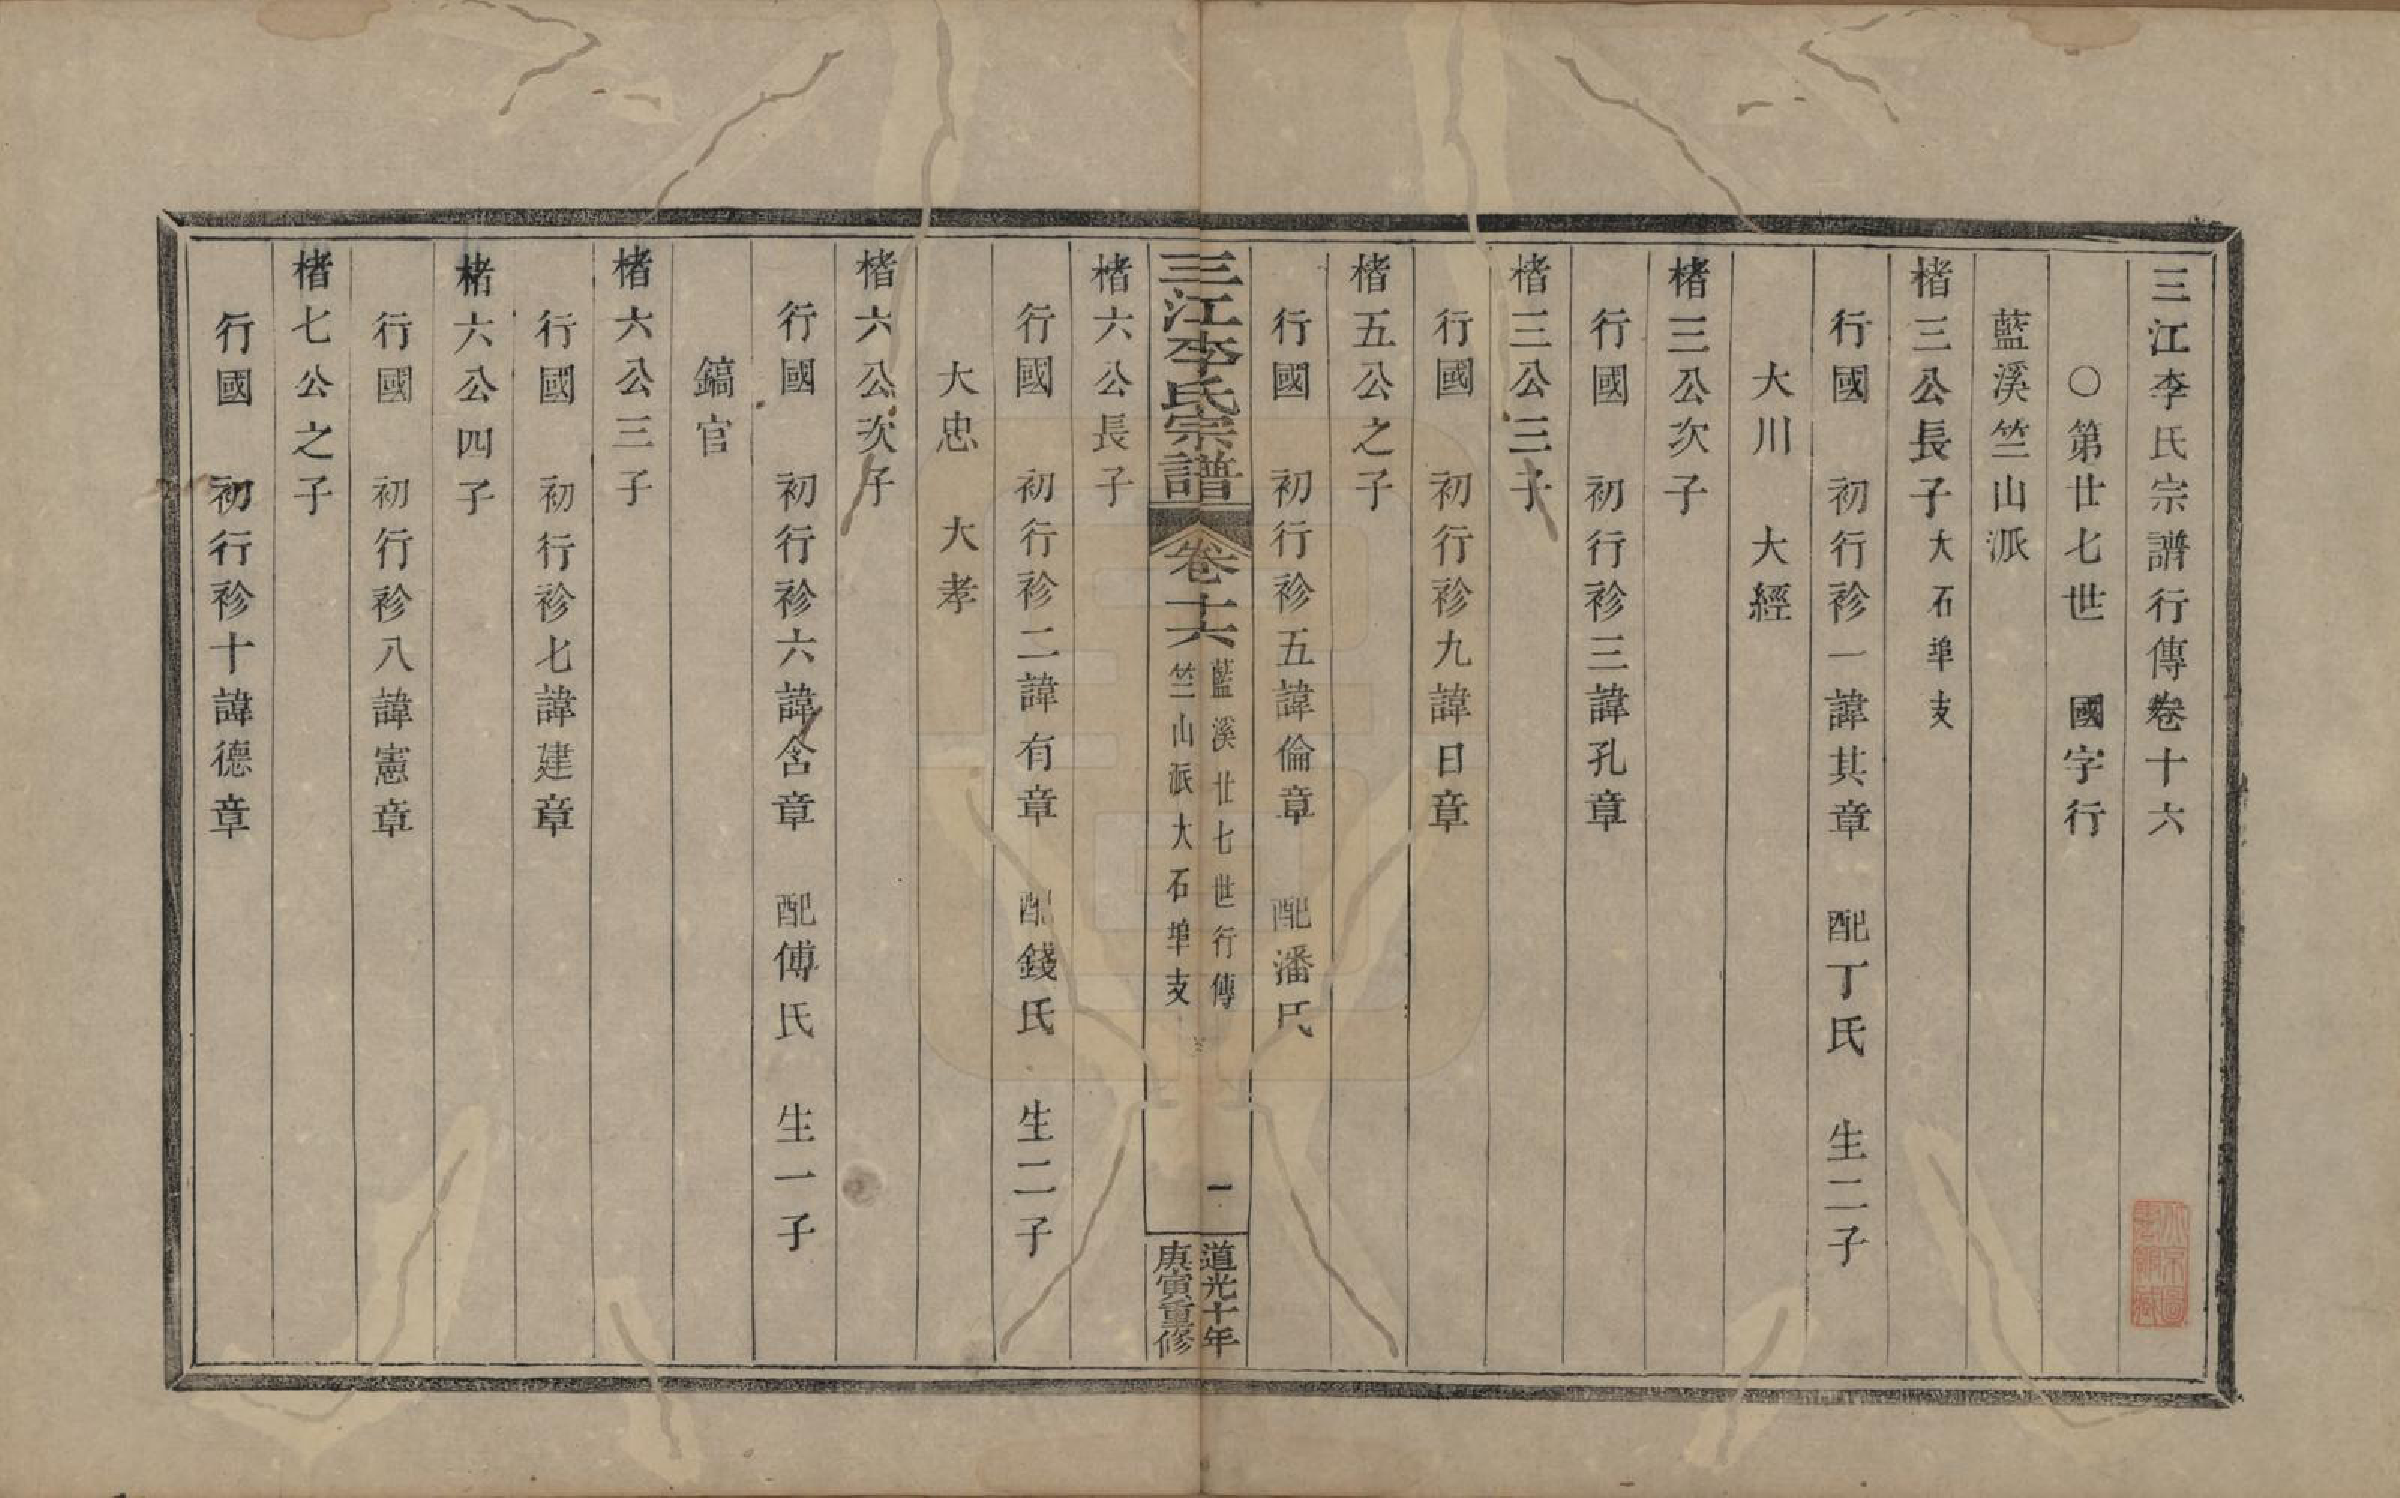 三江李氏宗譜行傳卷十六
〇第廿七世　國字行
藍溪竺山派
楮三公長子大石埠支
行國　初行袗一諱其章　配丁氏　生二子
大川　大經
楮三公次子
行國　初行袗三諱孔章
楮三公三子
行國　初行袗九諱日章
楮五公之子
行國　初行袗五諱倫章　配潘氏
三江李氏宗譜
卷十六
藍溪廿七世行傳
竺山派大石埠支
一
道光十年
庚寅重修
楮六公長子
行國　初行袗二諱有章　配錢氏　生二子
大忠　大孝
楮六公次子
行國　初行袗六諱含章　配傅氏　生一子
鎬官
楮六公三子
行國　初行袗七諱建章
楮六公四子
行國　初行袗八諱憲章
楮七公之子
行國　初行袗十諱德章